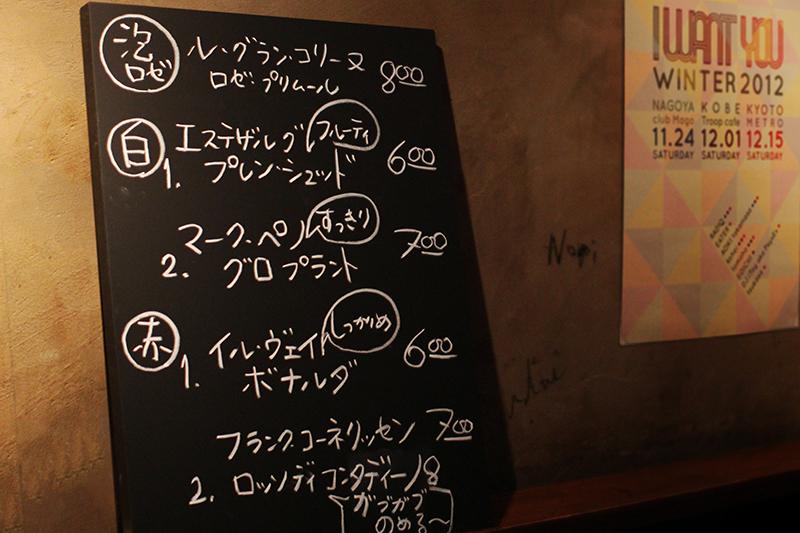 泡 ロゼ
ル・グラン・コリーヌ 800
ロゼ プリムール
白
1. エステザルグ フルーティ 600
プレン・シュッド
2. マーク・ペノ すっきり 700
グロ プラント
赤
1. イル・ヴェイ しっかりめ 600
ボナルダ
フランク・コーネリッセン 700
2. ロッソ ディ コンタディーノ 8
ガブガブ
のめる〜
I WANT YOU
WINTER 2012
NAGOYA KOBE KYOTO
club Mago Troop cafe METRO
11.24 12.01 12.15
SATURDAY SATURDAY SATURDAY